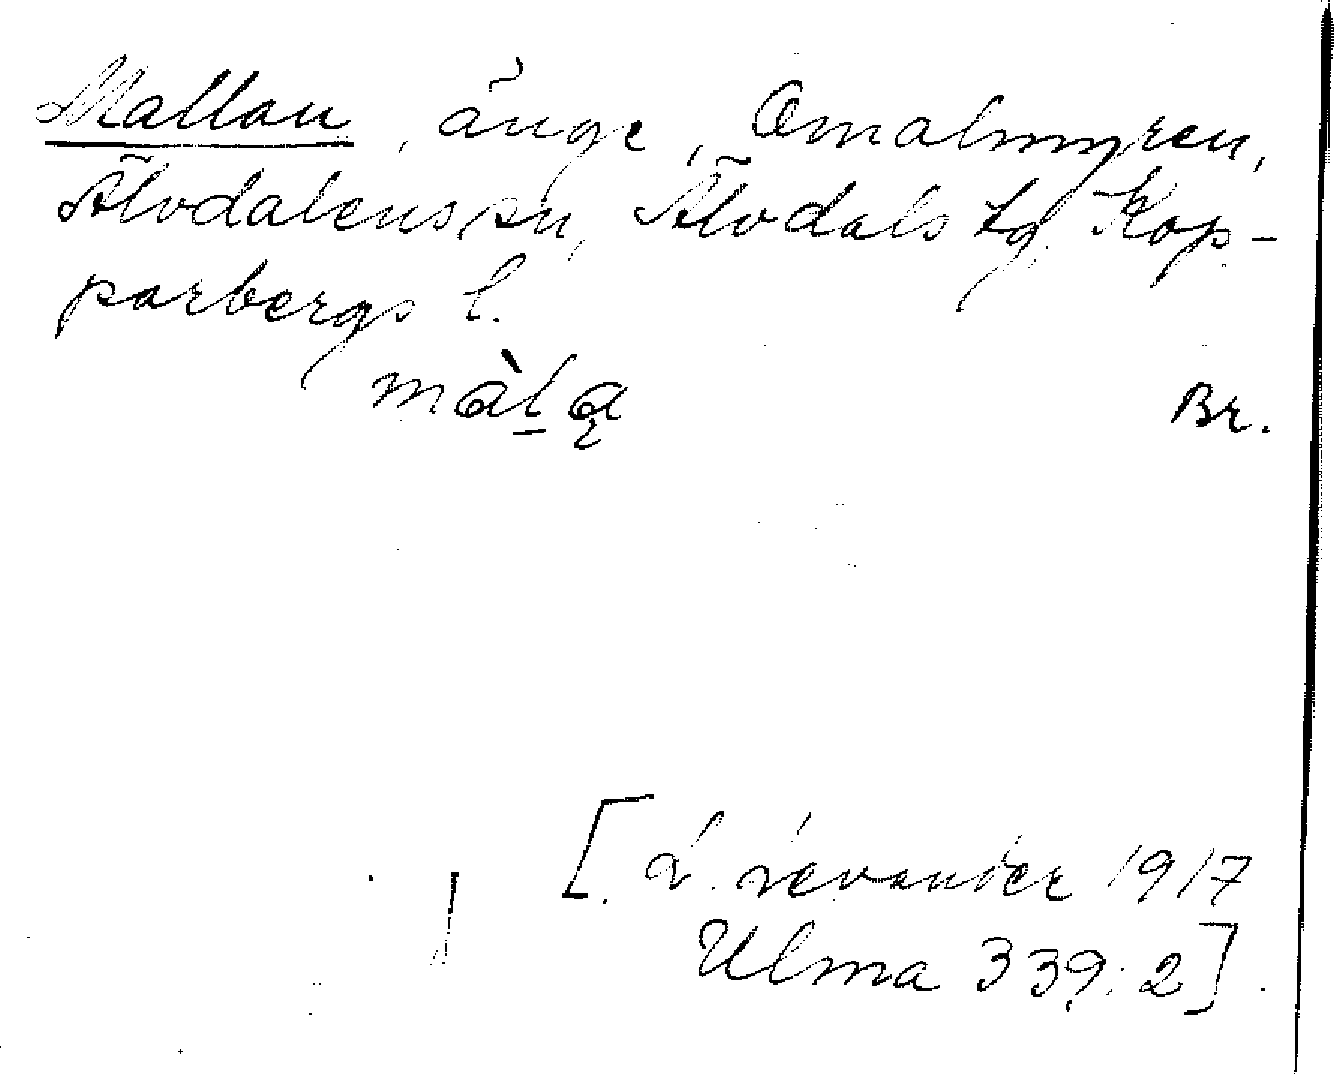 Mallan, änge, Omalmyren,
Älvdalens sn, Älvdals tg. Kop-
parbergs l.
màḻą Br.
[L. Levander 1917
Ulma 339:2].